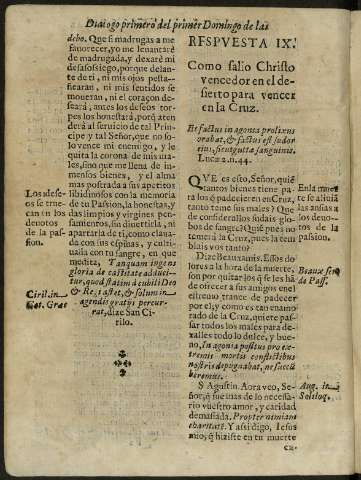 Dialogo primero del primer Domingo de las
debo. Que si madrugas a me
fauorecer, yo me leuantarè
de madrugada, y dexarè mi
desasossiego, porque delan-
te de ti, ni mis ojos pesta-
ñearan, ni mis sentidos se
moueran, ni el coraçon de-
seará; antes los deseos tor-
pes los honestará, porq̃ aten
derá al seruicio de tal Prin-
cipe y tal Señor, que no so-
lo vence mi enemigo, y le
quita la corona de mis ma-
les, sino que me llena de in-
mensos bienes, y el alma
mas postrada a sus apetitos
libidinosos con la memoria
de tu Passion, la honestas, y
das limpios y virgines pen-
samientos, sin diuertirla, ni
apartarla, assi como claua-
da con sus espinas, y cultiu
uala con tu sangre, en que
medita. Tanquam ingens
gloria de castitate adduci-
tur, quod statim à cubili Deo
& Regi astet, & solum in
agendis gratijs percur-
rat, dize San Ci-
rilo.
Los dese-
os se true
can en los
deuotos
de la pas-
sion.
Ciril. in
Hot. Grat
RESPVESTA IX.
Como salio Christo
vencedor en el de-
sierto para vencer
en la Cruz.
Et factus in agonia prolixus
orabat, & factus est sudor
eius, sicut gutta sanguinis.
Lucæ 2. n. 44.
QVE es esto, Señor, quiẽ
tantos bienes tiene pa-
ra los q̃ padecieron en Cruz,
tanto teme sus males? Que
de considerallos sudais glo-
bos de sangre? Quiẽ pues no
temerá la Cruz, pues la tem
blais vos tanto?
Dize Beauxamis. Essos do-
lores a la hora de la muerte,
son por quitar los q̃ se les ha
de ofrecer a sus amigos en el
estremo trance de padecer
por el, y como es tan enamo
rado de la Cruz, quiere pas-
sar todos los males para de-
xalles todo lo dulce, y bue-
no, In agonia positus pro ex-
tremis mortis conflictibus
nostris depugnabat, ne succũ
beremus.
S. Agustin. Aora veo, Se-
ñor, q̃ fue mas de lo necessa-
rio vuestro amor, y caridad
demasiada. Propter nimiam
charitatẽ. Y assi digo, Iesus
mio, q̃ hiziste en tu muerte
En la muer
te se aliuia
a los
deuotos
de la
passion.
de Pass.
Aug. in
Soliloq.